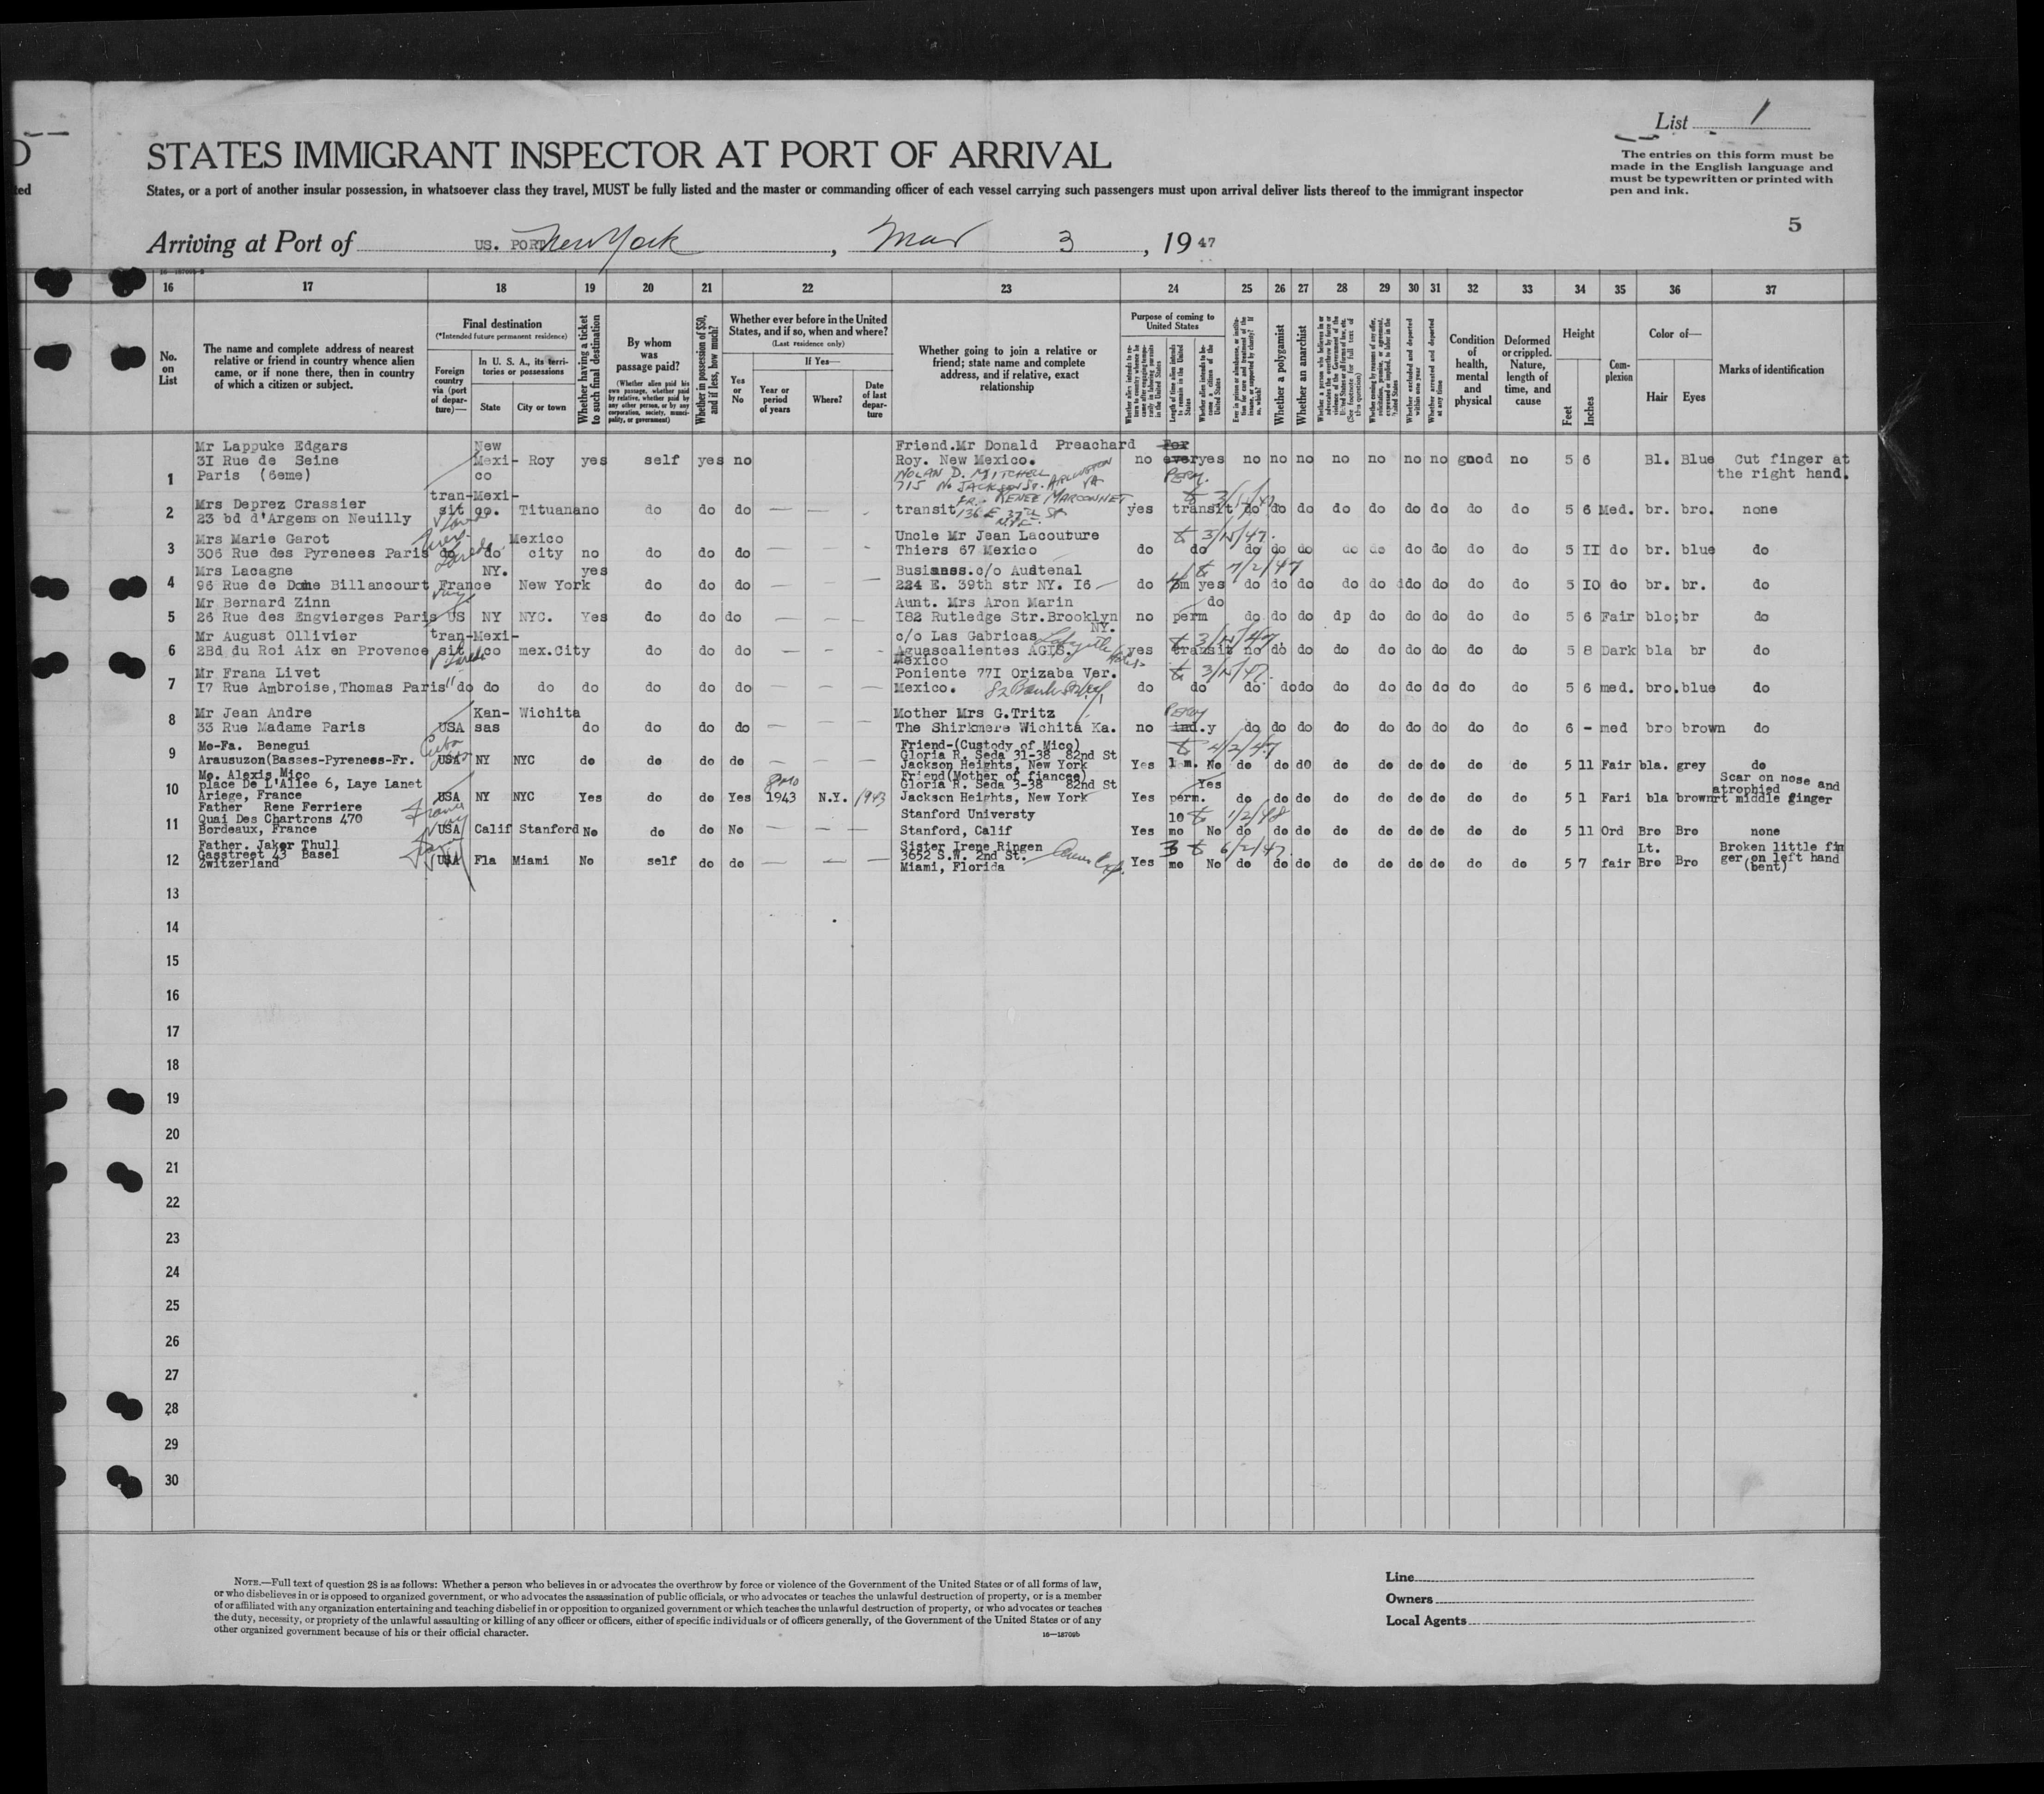 List 1
STATES IMMIGRANT INSPECTOR AT PORT OF ARRIVAL
The entries on this form must be
made in the English language and
must be typewritten or printed with
pen and ink.
States, or a port of another insular possession, in whatsoever class they travel, MUST be fully listed and the master or commanding officer of each vessel carrying such passengers must upon arrival deliver lists thereof to the immigrant inspector
5
Arriving at Port of US. PORT New York, Mar 3, 1947
16 17 18 19 20 21 22 23 24 25 26 27 28 29 30 31 32 33 34 35 36 37
No. on List
The name and complete address of nearest
relative or friend in country whence alien
came, or if none there, then in country
of which a citizen or subject.
Final destination
(*Intended future permanent residence)
Foreign country via (port of departure)—
In U. S. A., its territories or possessions
State
City or town
Whether having a ticket to such final destination
By whom was passage paid?
(Whether alien paid his own passage, whether paid by relative, whether paid by any other person, or by any corporation, society, municipality, or government)
Whether in possession of $50, and if less, how much?
Whether ever before in the United
States, and if so, when and where?
(Last residence only)
Yes or No
If Yes—
Year or period of years
Where?
Date of last departure
Whether going to join a relative or
friend; state name and complete
address, and if relative, exact
relationship
Purpose of coming to United States
Length of time alien intends to remain in the United States
Whether alien intends to become a citizen of the United States
Whether a polygamist
Whether an anarchist
Whether excluded and deported within one year
Whether arrested and deported at any time
Condition of health, mental and physical
Deformed or crippled. Nature, length of time, and cause
Height
Feet
Inches
Complexion
Color of—
Hair
Eyes
Marks of identification
1 Mr Lappuke Edgars 31 Rue de Seine Paris (6eme) New Mexi- co Roy yes self yes no Friend.Mr Donald Preachard Roy. New Mexico. NOLAN D. MITCHELL 715 No JACKSON St. ARLINGTON VA no For ever PERM. yes no no no no no no no good no 5 6 Bl. Blue Cut finger at the right hand.
2 Mrs Deprez Crassier 23 bd d'Argenson Neuilly tran- sit Mexi- co. Tituana no do do do — — - transit FR. RENEE MARCONNET 136 E 37th St NYC. yes transit 3/15/47 do do do do do do do do do 5 6 Med. br. bro. none
3 Mrs Marie Garot 306 Rue des Pyrenees Paris do do Mexico city no do do do — — - Uncle Mr Jean Lacouture Thiers 67 Mexico do do 3/15/47. do do do do do do do do do 5 II do br. blue do
4 Mrs Lacagne 96 Rue de Dome Billancourt France NY. New York yes do do do — — - Business.c/o Audtenal 224 E. 39th str NY. I6 do 7/2/47 yes do do do do do do do do do 5 IO do br. br. do
5 Mr Bernard Zinn 26 Rue des Engvierges Paris US NY NYC. Yes do do do — — - Aunt. Mrs Aron Marin I82 Rutledge Str.Brooklyn NY. no perm do do do do dp do do do do do 5 6 Fair blo; br do
6 Mr August Ollivier 2Bd du Roi Aix en Provence tran- sit Mexi- co mex.City do do do do - - - c/o Las Gabricas Aguascalientes AGIS. Mexico yes transit 3/15/47 no do do do do do do do do 5 8 Dark bla br do
7 Mr Frana Livet I7 Rue Ambroise,Thomas Paris "do do do do do do do — — — Poniente 77I Orizaba Ver. Mexico. do do 3/15/47. do do do do do do do do do 5 6 med. bro. blue do
8 Mr Jean Andre 33 Rue Madame Paris USA Kan- sas Wichita do do do do — — — Mother Mrs G.Tritz The Shirkmere Wichita Ka. no PERM ind. y do do do do do do do do do 6 - med bro brown do
9 Me-Fa. Benegui Arausuzon(Basses-Pyrenees-Fr. Cuba USA NY NYC do do do do — — — Friend-(Custody of Mico) Gloria R. Seda 31-38 82nd St Jackson Heights, New York Yes 1 m. 4/2/47 No do do do do do do do do do 5 11 Fair bla. grey do
10 Me. Alexis Mico place De L'Allee 6, Laye Lanet Ariege, France USA NY NYC Yes do do Yes 8 mo 1943 N.Y. 1943 Friend(Mother of fiancee) Gloria R. Seda 3-38 82nd St Jackson Heights, New York Yes perm. Yes do do do do do do do do do 5 1 Fari bla brown Scar on nose and atrophied rt middle ginger
11 Father Rene Ferriere Quai Des Chartrons 470 Bordeaux, France France USA Calif Stanford No do do No — — — Stanford Universty Stanford, Calif Yes 10 mo 1/2/48 No do do do do do do do do do 5 11 Ord Bro Bro none
12 Father. Jaker Thull Gasstreet 43 Basel Zwitzerland USA Fla Miami No self do do — — — Sister Irene Ringen 3652 S.W. 2nd St. Miami, Florida Yes 3 mo 6/2/47. No do do do do do do do do do 5 7 fair Lt. Bro Bro Broken little fin ger on left hand (bent)
13
14
15
16
17
18
19
20
21
22
23
24
25
26
27
28
29
30
NOTE.—Full text of question 28 is as follows: Whether a person who believes in or advocates the overthrow by force or violence of the Government of the United States or of all forms of law,
or who disbelieves in or is opposed to organized government, or who advocates the assassination of public officials, or who advocates or teaches the unlawful destruction of property, or is a member
of or affiliated with any organization entertaining and teaching disbelief in or opposition to organized government or which teaches the unlawful destruction of property, or who advocates or teaches
the duty, necessity, or propriety of the unlawful assaulting or killing of any officer or officers, either of specific individuals or of officers generally, of the Government of the United States or of any
other organized government because of his or their official character.
16—18709b
Line
Owners
Local Agents